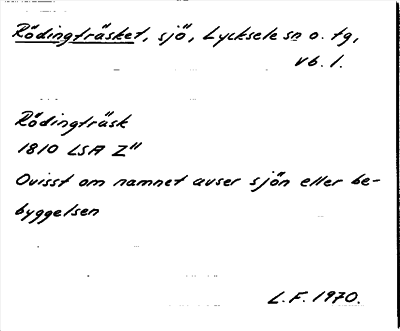 Rödingträsket, sjö, Lycksele sn o. tg,
Vb. l.
Rödingträsk
1810 LSA Z"
Ovisst om namnet avser sjön eller be-
byggelsen
L.F. 1970.